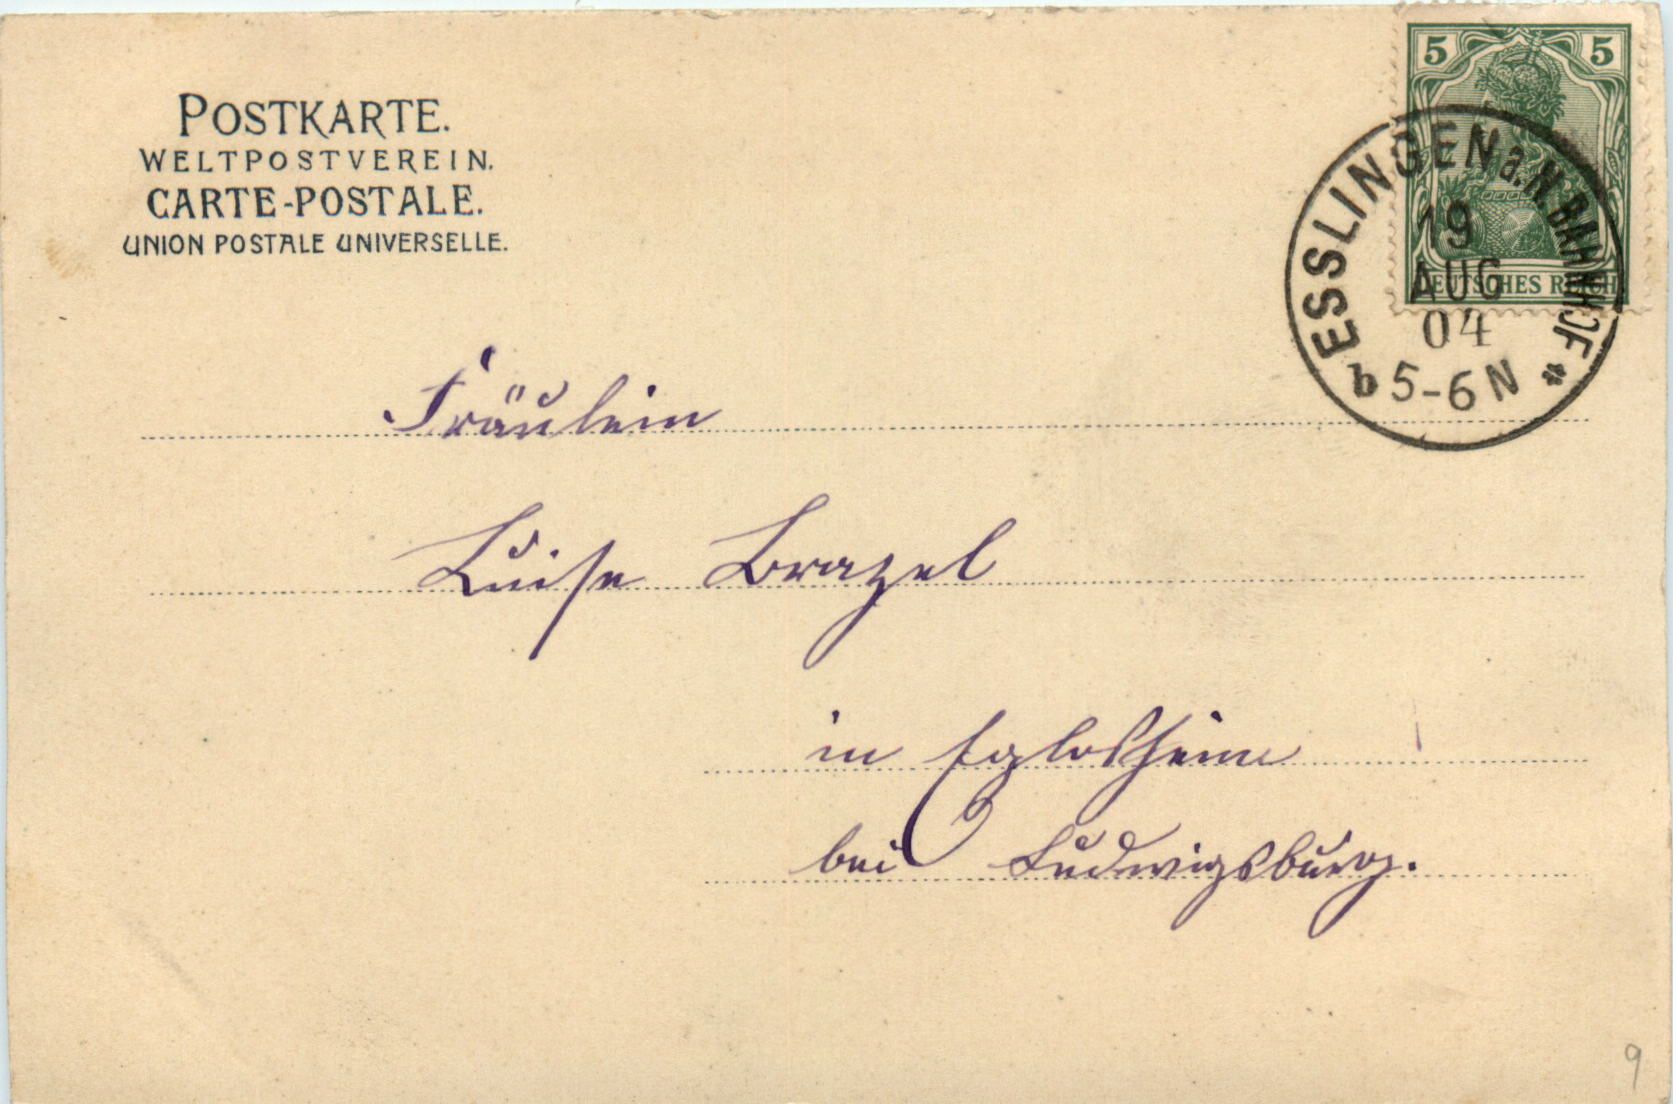 POSTKARTE.
WELTPOSTVEREIN.
CARTE-POSTALE.
UNION POSTALE UNIVERSELLE.
5 5
DEUTSCHES REICH
ESSLINGEN a. N. BAHNHOF
19
AUG
04
b 5-6 N *
Fräulein
Luise Brazel
in Eglosheim
bei Ludwigsburg.
9